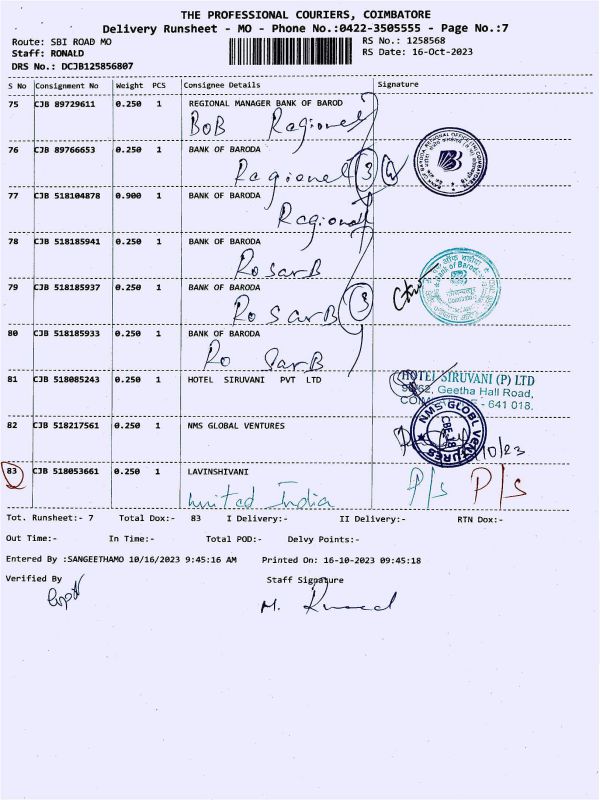 THE PROFESSIONAL COURIERS, COIMBATORE
Delivery Runsheet - MO - Phone No.:0422-3505555 - Page No.:7
Route: SBI ROAD MO RS No.: 1258568
Staff: RONALD RS Date: 16-Oct-2023
DRS No.: DCJB125856807
S No Consignment No Weight PCS Consignee Details Signature
75 CJB 89729611 0.250 1 REGIONAL MANAGER BANK OF BAROD
BoB Regional
76 CJB 89766653 0.250 1 BANK OF BARODA
Regional 3
77 CJB 518104878 0.900 1 BANK OF BARODA
Regional
78 CJB 518185941 0.250 1 BANK OF BARODA
Ro SarB
79 CJB 518185937 0.250 1 BANK OF BARODA
Ro SarB 3
80 CJB 518185933 0.250 1 BANK OF BARODA
Ro SarB
81 CJB 518085243 0.250 1 HOTEL SIRUVANI PVT LTD
HOTEL SIRUVANI (P) LTD
Geetha Hall Road,
- 641 018.
82 CJB 518217561 0.250 1 NMS GLOBAL VENTURES
NMS GLOBL VENTURES
CBE-18
/10/23
83 CJB 518053661 0.250 1 LAVINSHIVANI
United India P/s P/s
Tot. Runsheet:- 7 Total Dox:- 83 I Delivery:- II Delivery:- RTN Dox:-
Out Time:- In Time:- Total POD:- Delvy Points:-
Entered By :SANGEETHAMO 10/16/2023 9:45:16 AM Printed On: 16-10-2023 09:45:18
Verified By Staff Signature